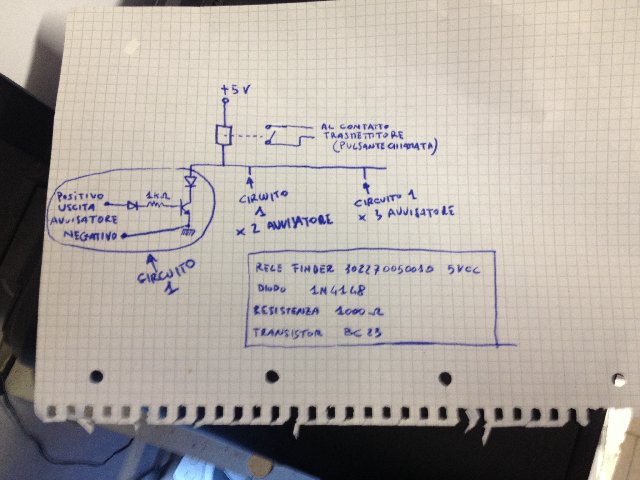 +5V
AL CONTATTO
TRASMETTITORE
(PULSANTE CHIAMATA)
POSITIVO
USCITA
AVVISATORE
1KΩ
NEGATIVO
CIRCUITO
1
CIRCUITO
1
x 2 AVVISATORE
CIRCUITO 1
x 3 AVVISATORE
RELE FINDER 302270050010 5VCC
DIODO 1N4148
RESISTENZA 1000Ω
TRANSISTOR